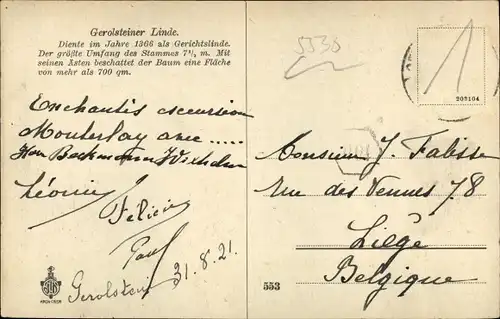 Gerolsteiner Linde.
Diente im Jahre 1366 als Gerichtslinde.
Der größte Umfang des Stammes 7½ m. Mit
seinen Ästen beschattet der Baum eine Fläche
von mehr als 700 qm.
5530
203104
Enchantés excursion
Monterlay avec .....
Herr Beckmann Wilhelm
Léonie
Félicie
Paul
Gerolstein 31.8.21.
Monsieur J. Falisse
Rue des Vennes 78
Liège
Belgique
553